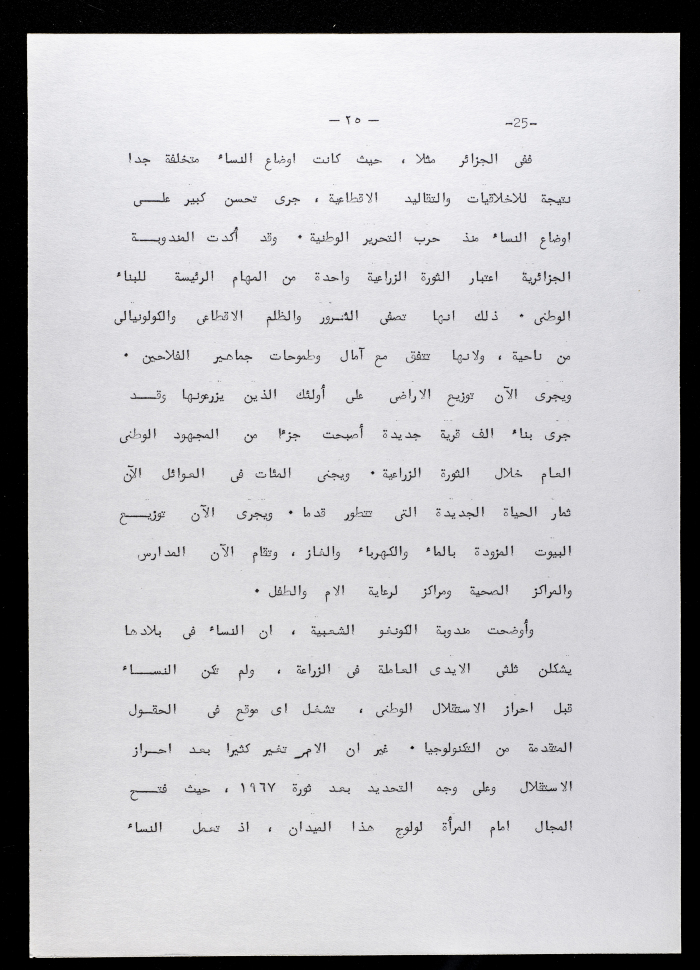 -25-
— ٢٥ —
ففى الجزائر مثلا ، حيث كانت اوضاع النساء متخلفة جدا
نتيجة للاخلاقيات والتقاليد الاقطاعية ، جرى تحسن كبير علـــى
اوضاع النساء منذ حرب التحرير الوطنية ٠ وقد أكدت المندوبــة
الجزائرية اعتبار الثورة الزراعية واحدة من المهام الرئيسة للبناء
الوطنى ٠ ذلك انها تصفى الشرور والظلم الاقطاعى والكولونيالى
من ناحية ، ولانها تتفق مع آمال وطموحات جماهير الفلاحين ٠
ويجرى الآن توزيع الاراضى على أولئك الذين يزرعونها وقـــد
جرى بناء الف قرية جديدة أصبحت جزءا من المجهود الوطنى
العام خلال الثورة الزراعية ٠ ويجنى المئات فى العوائل الآن
ثمار الحياة الجديدة التى تتطور قدما ٠ ويجرى الآن توزيـــع
البيوت المزودة بالماء والكهرباء والغاز ، وتقام الآن المدارس
والمراكز الصحية ومراكز لرعاية الام والطفل ٠
وأوضحت مندوبة الكونغو الشعبية ، ان النساء فى بلادها
يشكلن ثلثى الايدى العاملة فى الزراعة ، ولم تكن النســـاء
قبل احراز الاستقلال الوطنى ، تشغل اى موقع فى الحقــول
المتقدمة من التكنولوجيا ٠ غير ان الامر تغير كثيرا بعد احــراز
الاستقلال وعلى وجه التحديد بعد ثورة ١٩٦٧ ، حيث فتـــح
المجال امام المرأة لولوج هذا الميدان ، اذ تعمل النساء